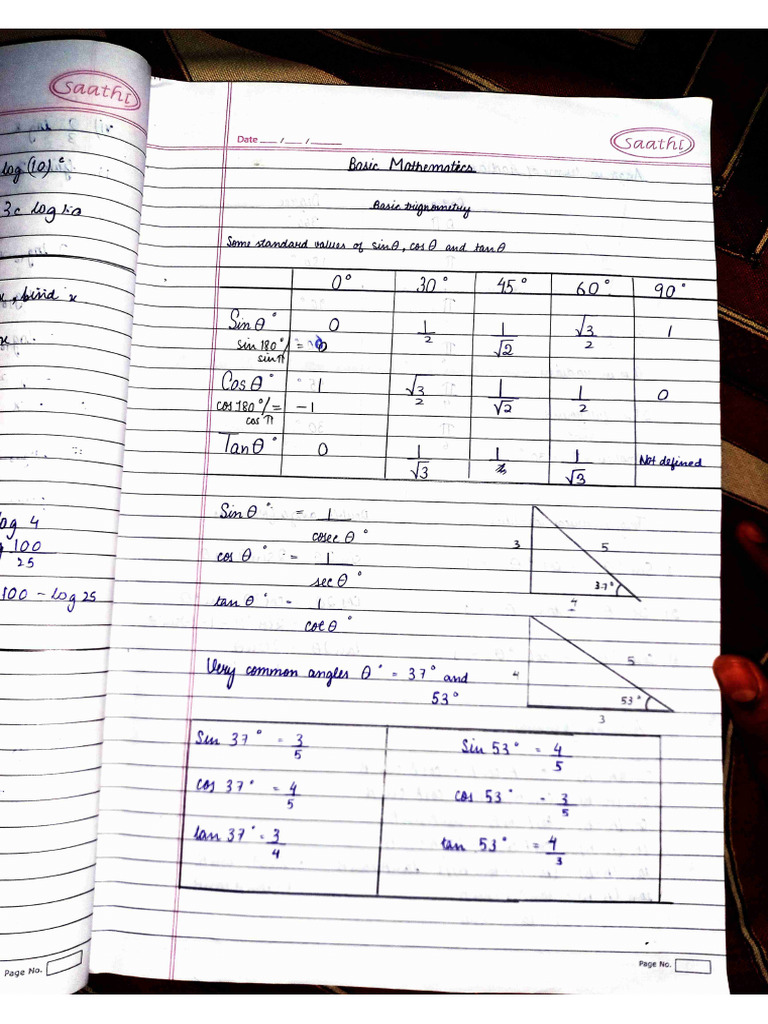 Saathi
log (10)ᶜ
3c log
, find x
x
log 4
100
25
100 - log 25
Page No.
Date __ / __ / ____
Saathi
Basic Mathematics
Basic trignometry
Some standard values of sinθ, cosθ and tanθ
0° 30° 45° 60° 90°
Sinθ° 0 1/2 1/√2 √3/2 1
sin 180°/ sin π = 0
Cosθ° 1 √3/2 1/√2 1/2 0
cos 180°/ cos π = -1
Tanθ° 0 1/√3 1/√3 Not defined
Sinθ° = 1/cosec θ°
cos θ° = 1/sec θ°
tan θ° - 1/cot θ°
3 5 37°
4 5 53° 3
Very common angles θ° = 37° and
53°
Sin 37° = 3/5 Sin 53° = 4/5
cos 37° = 4/5 cos 53° - 3/5
tan 37° = 3/4 tan 53° = 4/3
Page No.